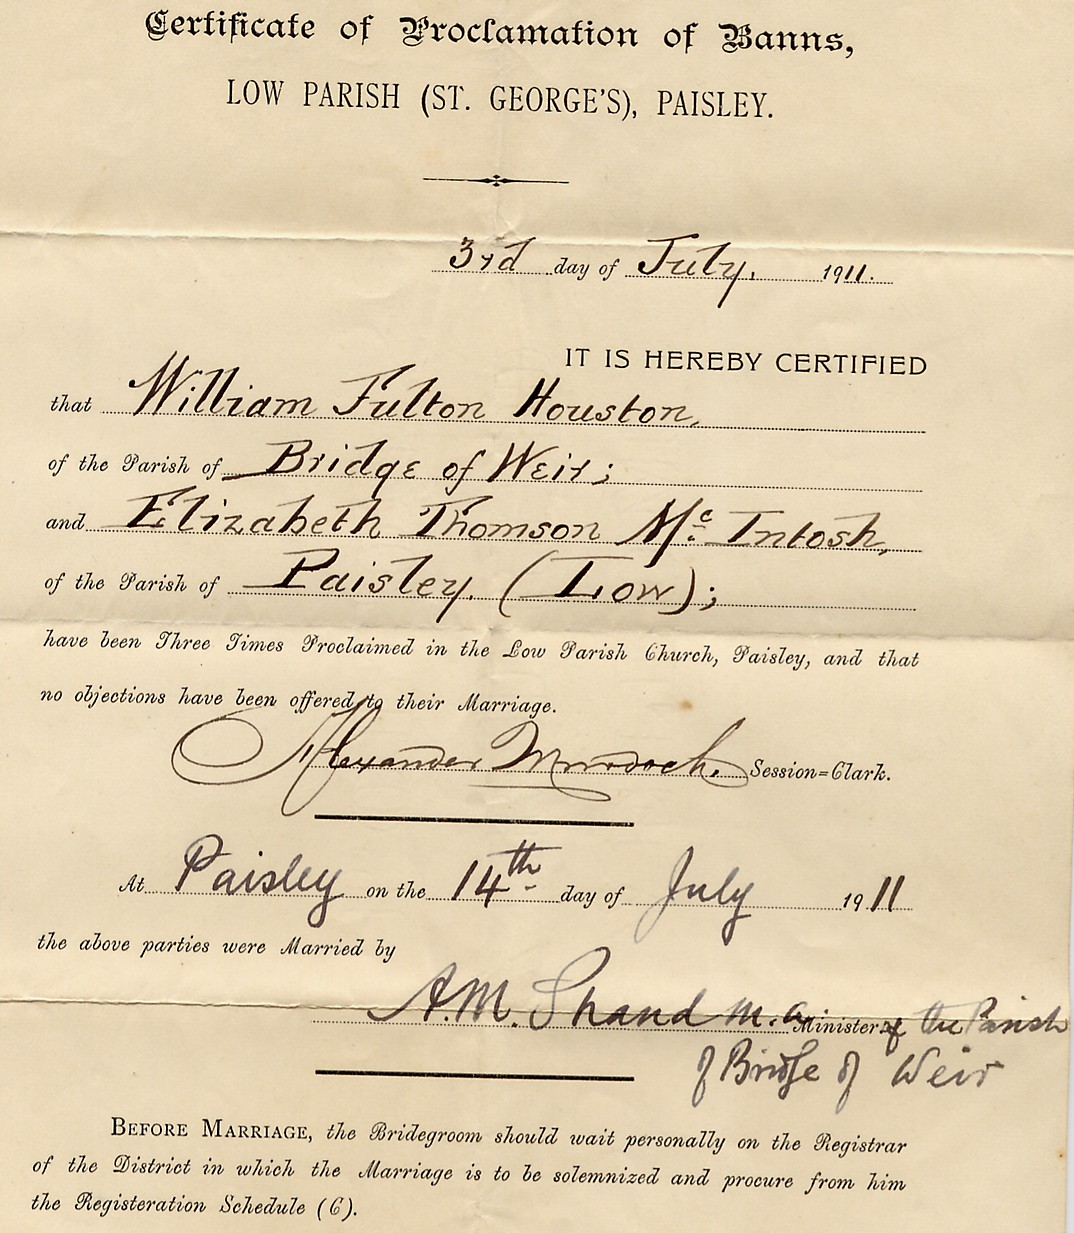 Certificate of Proclamation of Banns,
LOW PARISH (ST. GEORGE'S), PAISLEY.
3rd day of July, 1911.
IT IS HEREBY CERTIFIED
that William Fulton Houston,
of the Parish of Bridge of Weir;
and Elizabeth Thomson Mc Intosh,
of the Parish of Paisley. (Low);
have been Three Times Proclaimed in the Low Parish Church, Paisley, and that
no objections have been offered to their Marriage.
Alexander Murdoch. Session=Clark.
At Paisley on the 14th day of July 1911
the above parties were Married by
A.M. Shand M.A. Minister of the Parish
of Bridge of Weir
BEFORE MARRIAGE, the Bridegroom should wait personally on the Registrar
of the District in which the Marriage is to be solemnized and procure from him
the Registeration Schedule (C).